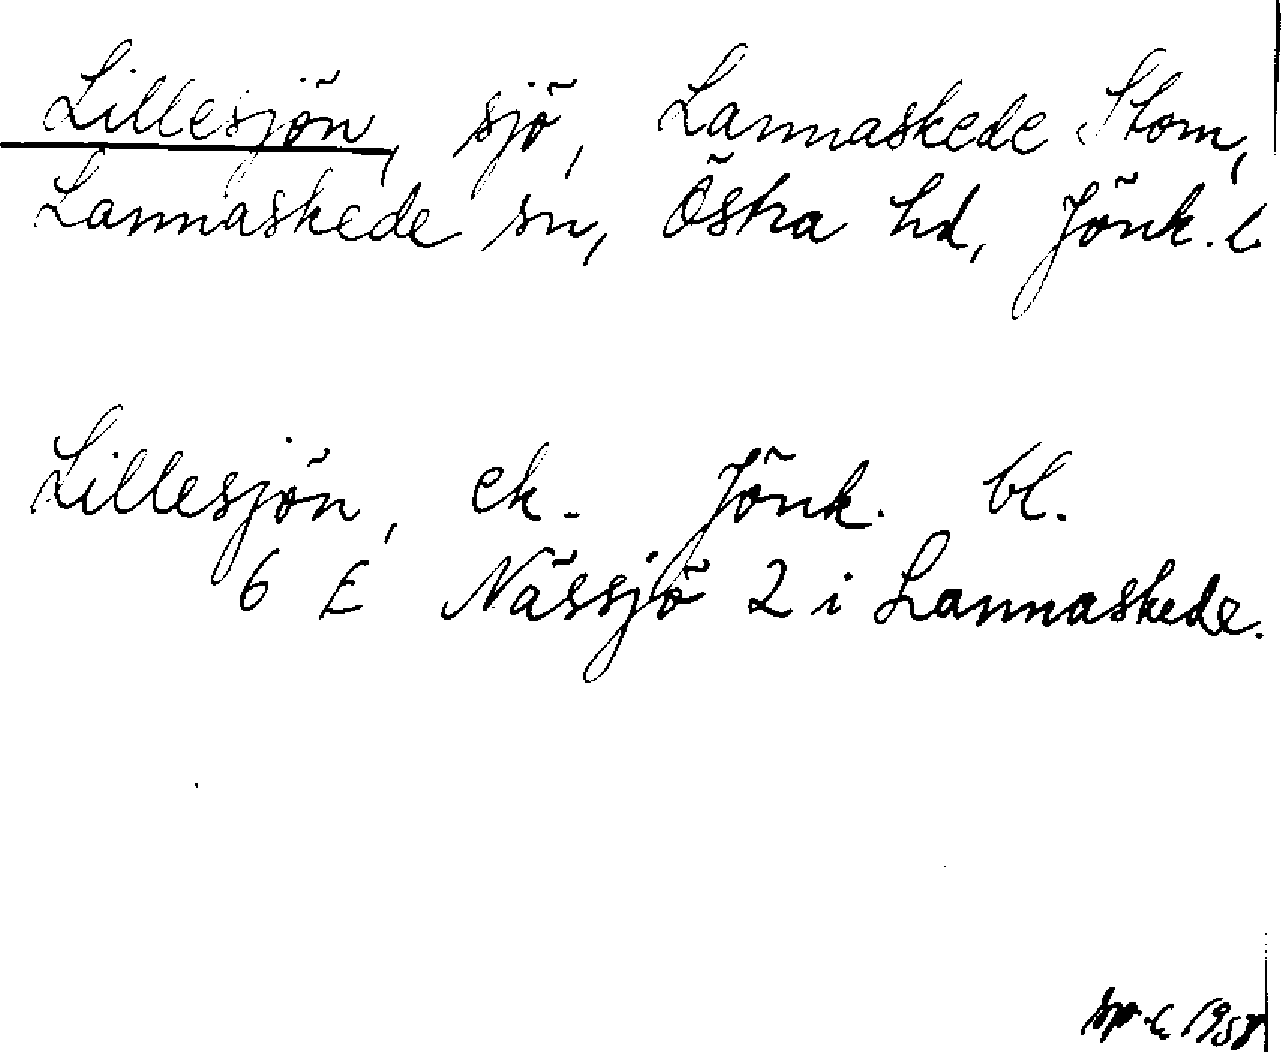 Lillesjön, sjö, Lannaskede Stom,
Lannaskede sn, Östra hd, Jönk. l.
Lillesjön, ek. Jönk. bl.
6 E Nässjö 2 i Lannaskede.